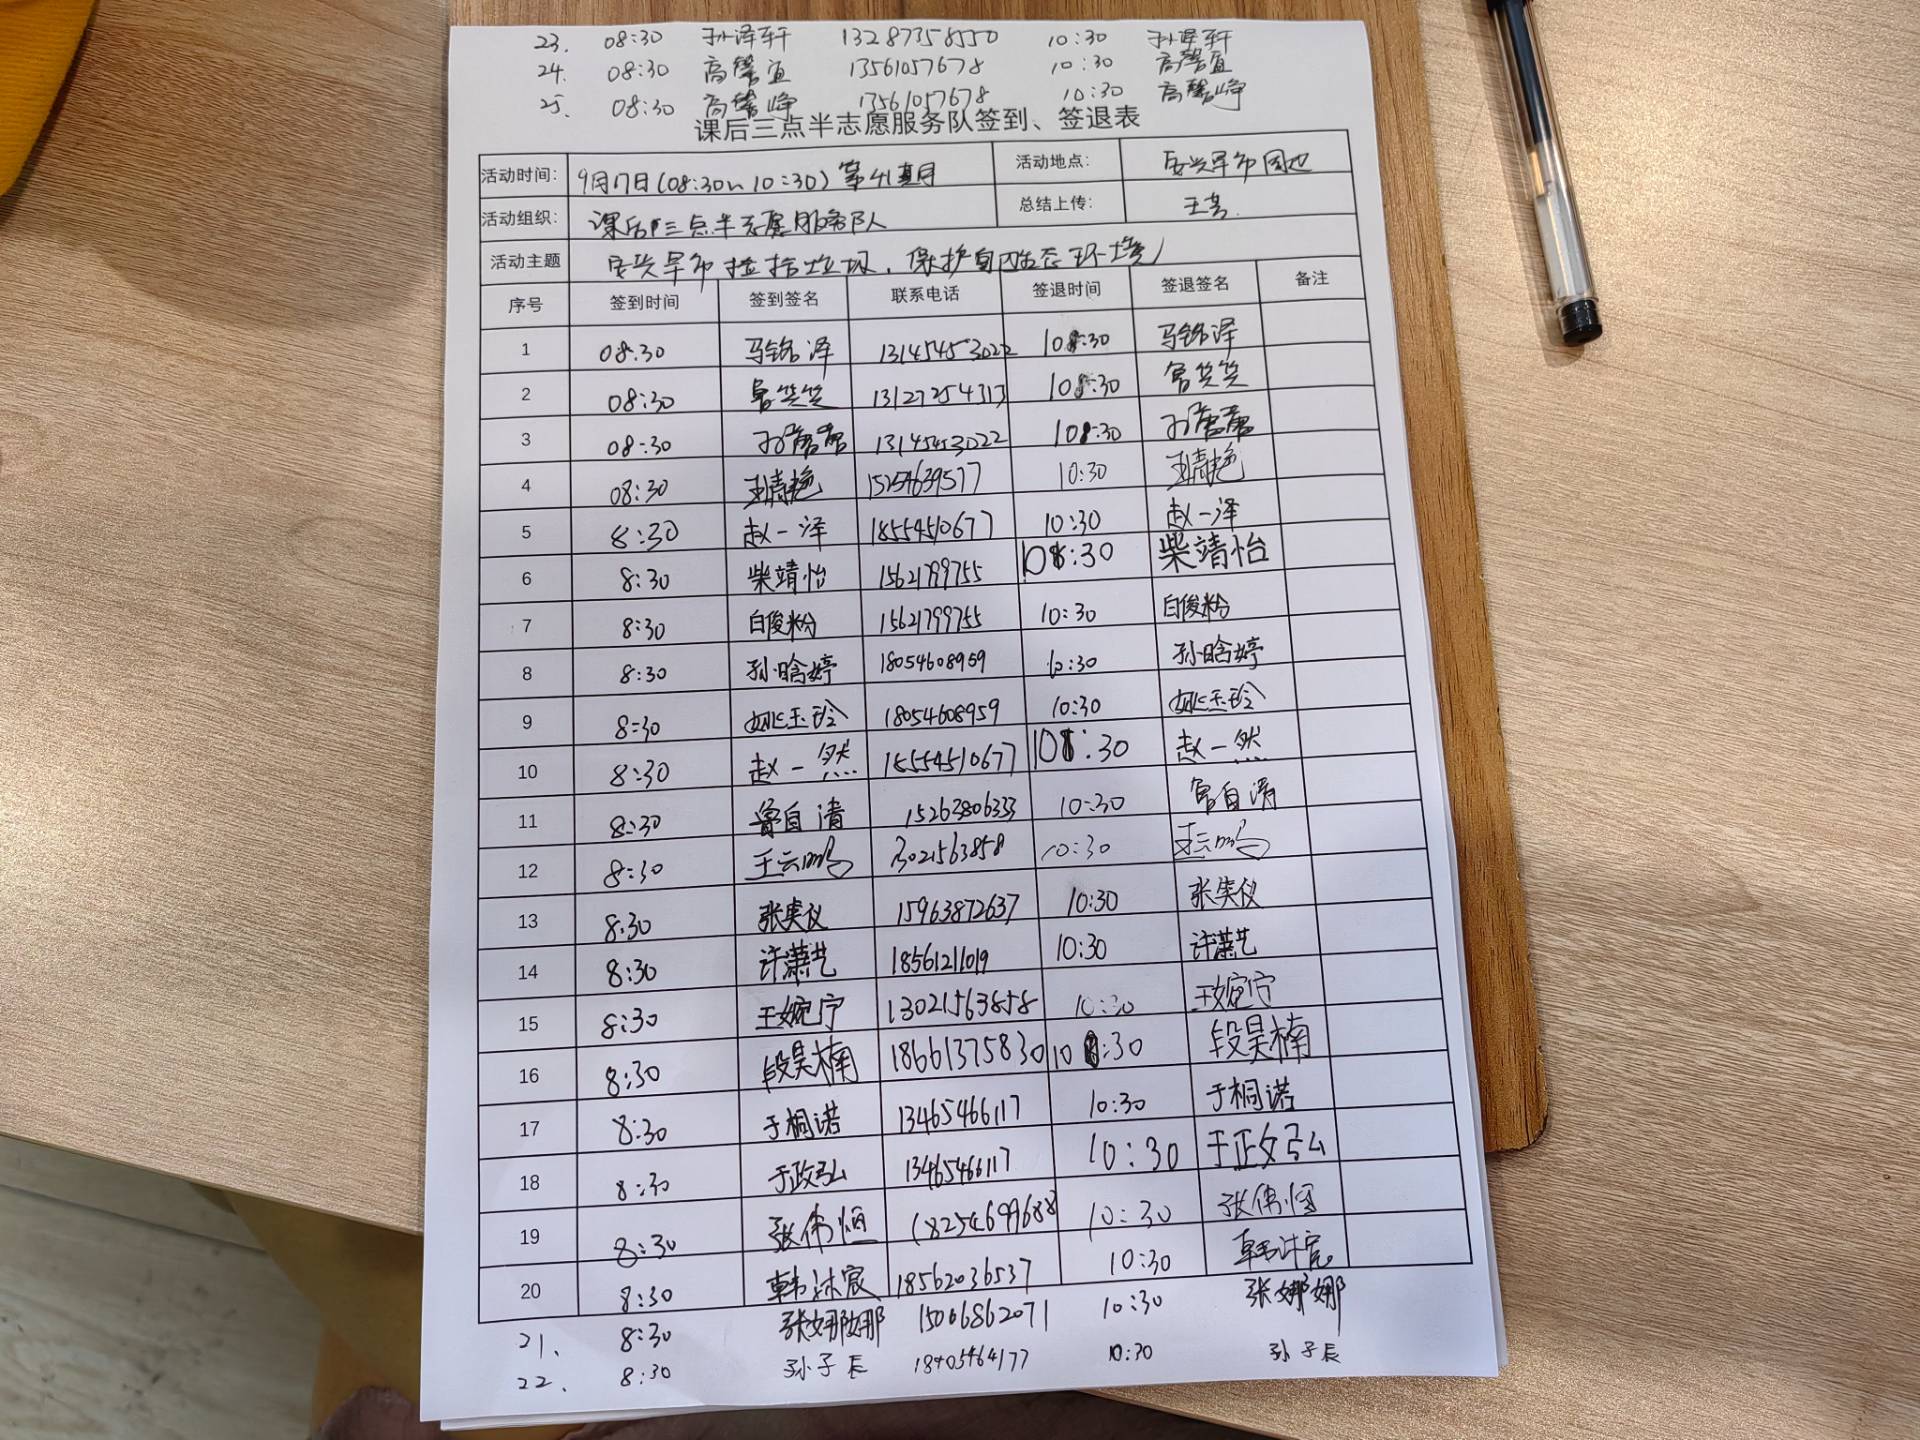 23. 08:30 孙泽轩 13287358550 10:30 孙泽轩
24. 08:30 高馨宜 13561057678 10:30 高馨宜
25. 08:30 高馨峥 13561057678 10:30 高馨峥
课后三点半志愿服务队签到、签退表
活动时间: 9月17日(08:30~10:30) 第41 活动地点:
活动组织: 课后三点半志愿服务队 总结上传: 王
活动主题 捡拾垃圾,保护自然生态环境
序号 签到时间 签到签名 联系电话 签退时间 签退签名 备注
1 08.30 马铭泽 13145453022 10:30 马铭泽
2 08:30 鲁笑笑 13127254313 10:30 鲁笑笑
3 08:30 13145453022 10:30
4 08:30 王靖艳 15254639577 10:30 王靖艳
5 8:30 赵一泽 18554510677 10:30 赵一泽
6 8:30 柴靖怡 15621799755 10:30 柴靖怡
7 8:30 白俊粉 15621799755 10:30 白俊粉
8 8:30 孙晗婷 18054608959 10:30 孙晗婷
9 8:30 姚玉珍 18054608959 10:30 姚玉珍
10 8:30 赵一然 18554510677 10:30 赵一然
11 8:30 鲁自清 15263806333 10:30 鲁自清
12 8:30 王云鸣 13021563858 10:30 王云鸣
13 8:30 张奕仪 15963872637 10:30 张奕仪
14 8:30 许潇艺 18561211019 10:30 许潇艺
15 8:30 王婉宁 13021563858 10:30 王婉宁
16 8:30 段昊楠 18661375830 10:30 段昊楠
17 8:30 于桐诺 13465466117 10:30 于桐诺
18 8:30 于政弘 13465466117 10:30 于政弘
19 8:30 张伟恒 18254699688 10:30 张伟恒
20 8:30 韩沐宸 18562036537 10:30 韩沐宸
21. 8:30 张娜娜 15006862071 10:30 张娜娜
22. 8:30 孙子辰 18405464177 10:30 孙子辰